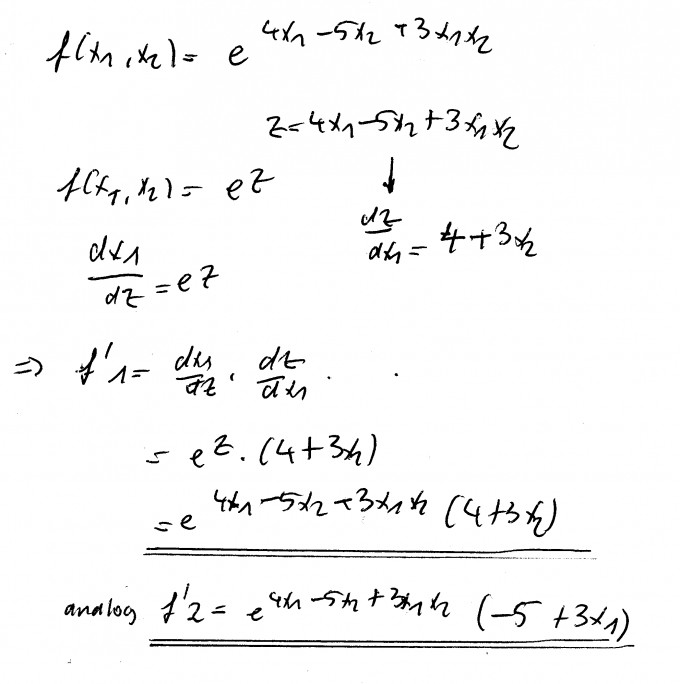 f(x₁, x₂) = e^(4x₁ - 5x₂ + 3x₁x₂)
z = 4x₁ - 5x₂ + 3x₁x₂
f(x₁, x₂) = e^z
↓
dz/dx₁ = 4 + 3x₂
dx₁/dz = e^z
=> f'1 = dx₁/dz · dz/dx₁ .
= e^z · (4 + 3x₂)
= e^(4x₁ - 5x₂ + 3x₁x₂) (4 + 3x₂)
analog f'2 = e^(4x₁ - 5x₂ + 3x₁x₂) (-5 + 3x₁)